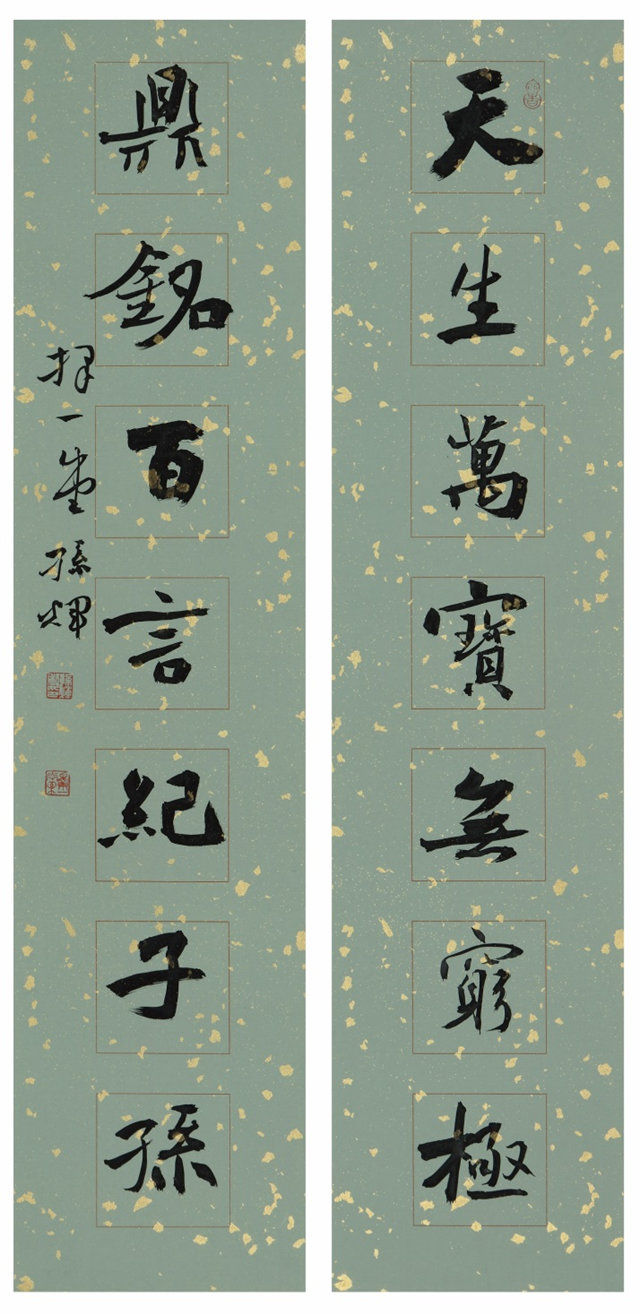 天生萬寶無窮極
鼎銘百言紀子孫
擇一堂 孫暉